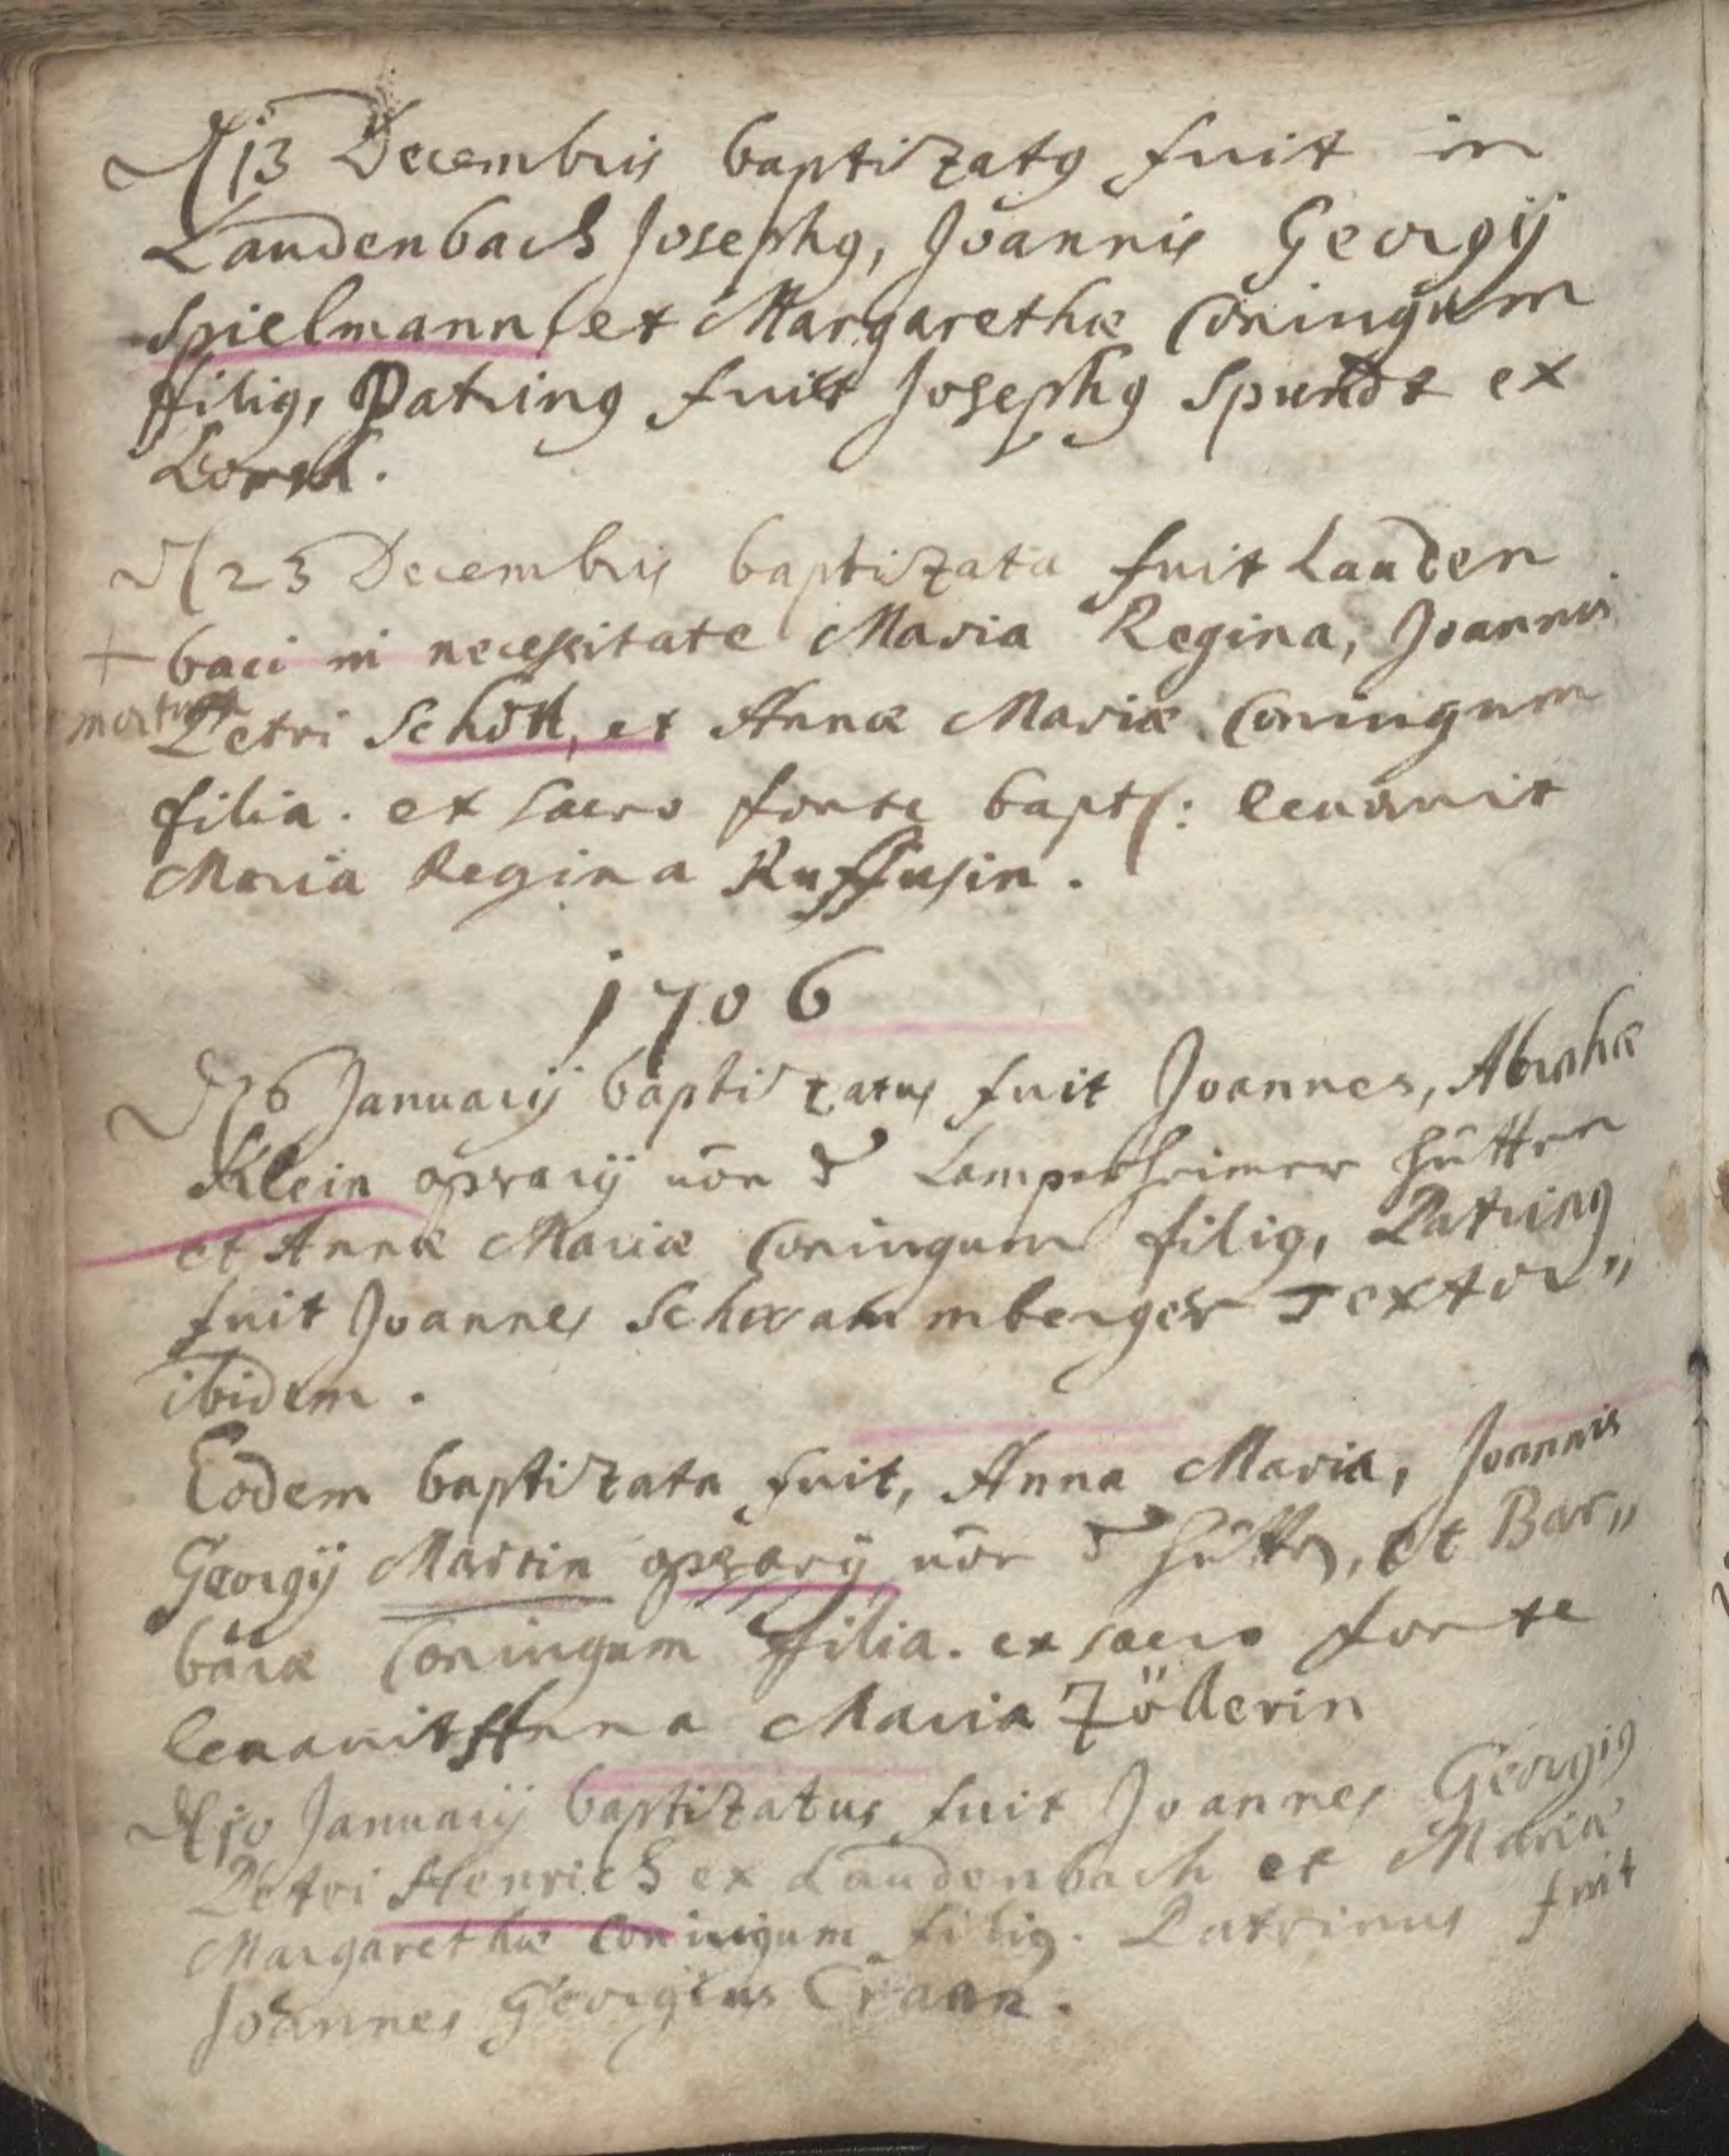 13 Decembris baptizatus fuit in
Laudenbach Josephus, Joannis Georgij
Spielmann, et Margarethæ Coniugum
ffilius, Patrinus fuit Josephus Spundt ex
Lorsch.
23 Decembris baptizata fuit Lauden
+ baci in necessitate Maria Regina, Joannis
mortua
Petri Schöll, et Annæ Mariæ Coniugum
filia. ex sacro fonte bapts: leuauit
Maria Regina Ruffusin.
1706
6 Januarij baptizatus fuit Joannes, Abrahæ
Klein oprarij uōn d Lamperheimer hütten
et Annæ Mariæ Coniugum filius, Patrinus
fuit Joannes Schwammberger Textor"
ibidem.
Eodem baptizata fuit, Anna Maria, Joannis
Georgij Martin oprarij uōn d hüttn, et Bar"
baræ Coniugum ffilia. ex sacro fonte
leuauit Anna Maria Zöllerin
10 Januarij baptizatus fuit Joannes Georgius
Petri Henrich ex Laudenbach et Mariæ
Margarethæ Coniugum filius. Patrinus fuit
Joannes Georgius